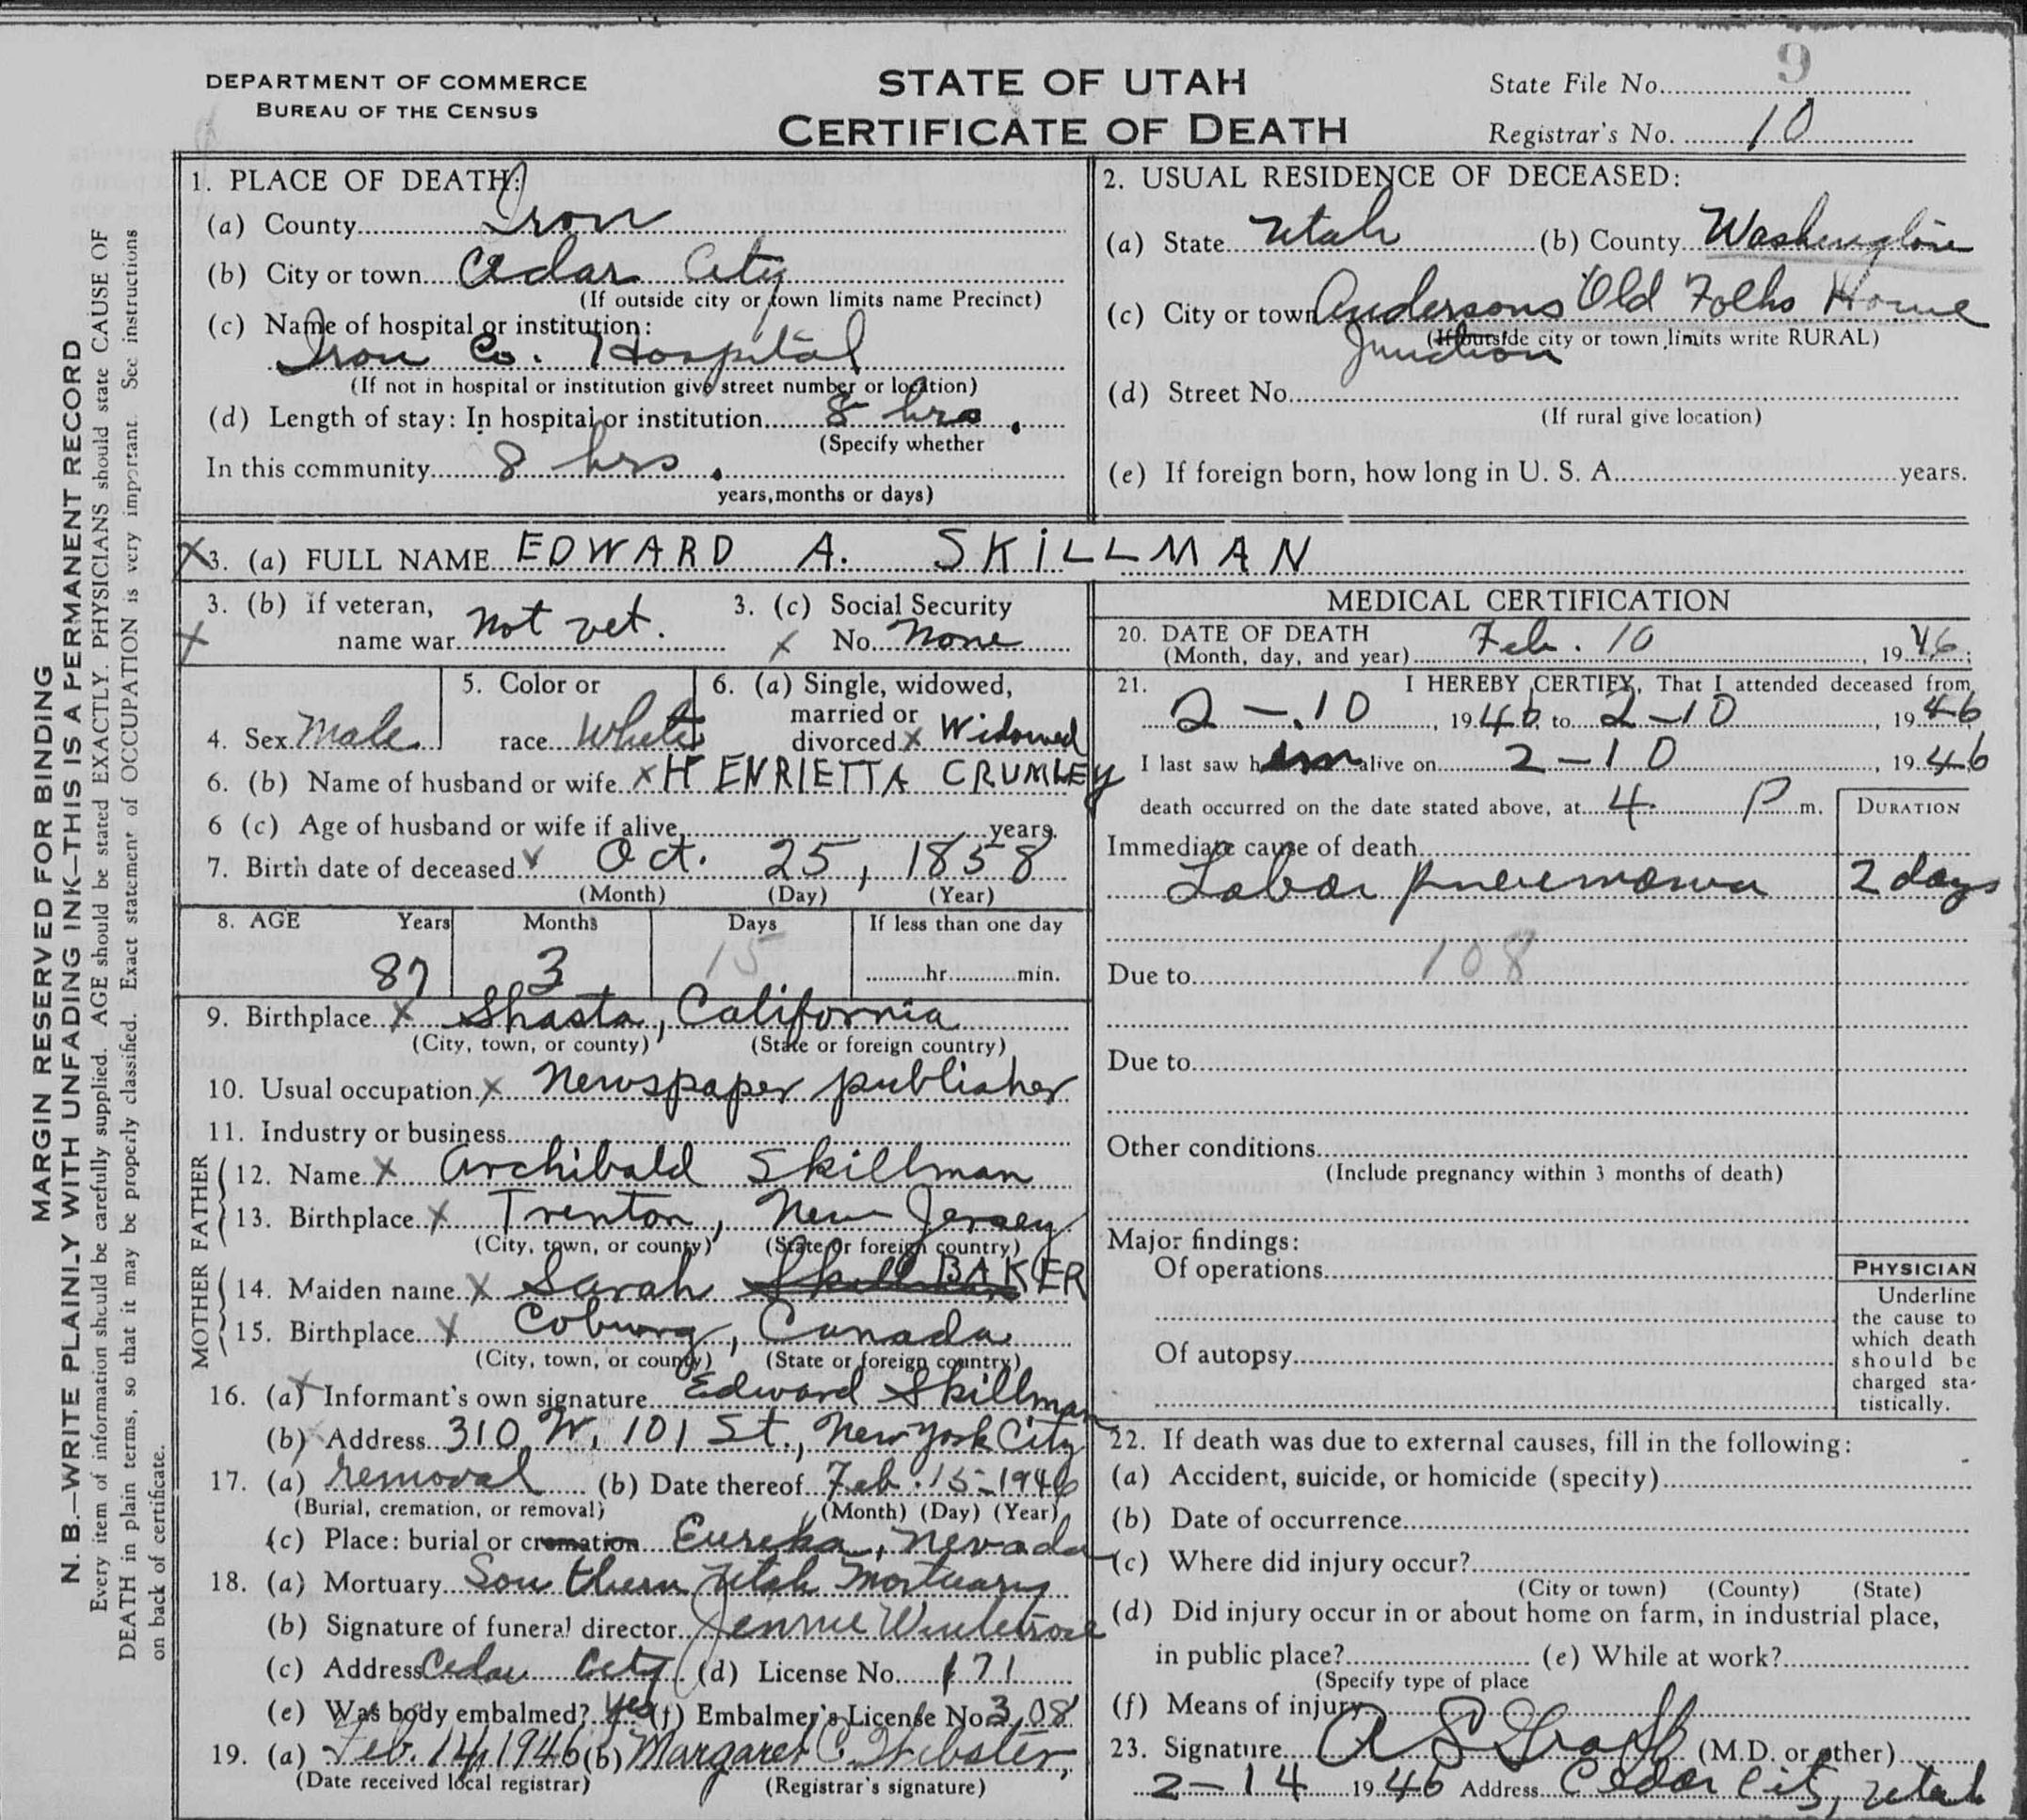 DEPARTMENT OF COMMERCE
BUREAU OF THE CENSUS
STATE OF UTAH
CERTIFICATE OF DEATH
State File No. 9
Registrar's No. 10
MARGIN RESERVED FOR BINDING
N. B.—WRITE PLAINLY WITH UNFADING INK—THIS IS A PERMANENT RECORD
Every item of information should be carefully supplied. AGE should be stated EXACTLY. PHYSICIANS should state CAUSE OF
DEATH in plain terms, so that it may be properly classified. Exact statement of OCCUPATION is very important. See instructions
on back of certificate.
1. PLACE OF DEATH:
(a) County Iron
(b) City or town Cedar City
(If outside city or town limits name Precinct)
(c) Name of hospital or institution:
Iron Co. Hospital
(If not in hospital or institution give street number or location)
(d) Length of stay: In hospital or institution 8 hrs.
(Specify whether
In this community 8 hrs.
years, months or days)
2. USUAL RESIDENCE OF DECEASED:
(a) State Utah (b) County Washington
(c) City or town Andersons Old Folks Home
Junction
(If outside city or town limits write RURAL)
(d) Street No.
(If rural give location)
(e) If foreign born, how long in U. S. A. years.
X 3. (a) FULL NAME EDWARD A. SKILLMAN
3. (b) if veteran,
X name war not vet.
3. (c) Social Security
X No. None
4. Sex Male
5. Color or
race White
6. (a) Single, widowed,
married or
divorced X Widowed
6. (b) Name of husband or wife X HENRIETTA CRUMLEY
6 (c) Age of husband or wife if alive, years.
7. Birth date of deceased Oct. 25, 1858
(Month) (Day) (Year)
8. AGE Years Months Days If less than one day
87 3 15 hr. min.
9. Birthplace X Shasta, California
(City, town, or county) (State or foreign country)
10. Usual occupation X Newspaper publisher
11. Industry or business
FATHER
12. Name X Archibald Skillman
13. Birthplace X Trenton, New Jersey
(City, town, or county) (State or foreign country)
MOTHER
14. Maiden name X Sarah Skillman BAKER
15. Birthplace X Coburg, Canada
(City, town, or county) (State or foreign country)
16. (a) X Informant's own signature Edward Skillman
(b) X Address 310 W. 101 St., New York City
17. (a) removal (b) Date thereof Feb. 15-1946
(Burial, cremation, or removal) (Month) (Day) (Year)
(c) Place: burial or cremation Eureka, Nevada
18. (a) Mortuary Southern Utah Mortuary
(b) Signature of funeral director Jennie
(c) Address Cedar City (d) License No. 171
(e) Was body embalmed? yes (f) Embalmer's License No. 308
19. (a) Feb. 14, 1946 (b) Margaret C. Webster,
(Date received local registrar) (Registrar's signature)
MEDICAL CERTIFICATION
20. DATE OF DEATH
(Month, day, and year) Feb. 10, 1946;
21. I HEREBY CERTIFY, That I attended deceased from
2-10, 1946 to 2-10, 1946
I last saw him alive on 2-10, 1946
death occurred on the date stated above, at 4 P m.
DURATION
Immediate cause of death
Lobar pneumonia 2 days
Due to 108
Due to
Other conditions
(Include pregnancy within 3 months of death)
Major findings:
Of operations
Of autopsy
PHYSICIAN
Underline
the cause to
which death
should be
charged sta-
tistically.
22. If death was due to external causes, fill in the following:
(a) Accident, suicide, or homicide (specify)
(b) Date of occurrence
(c) Where did injury occur?
(City or town) (County) (State)
(d) Did injury occur in or about home on farm, in industrial place,
in public place? (e) While at work?
(Specify type of place
(f) Means of injury
23. Signature (M.D. or other)
2-14 1946 Address Cedar City, Utah